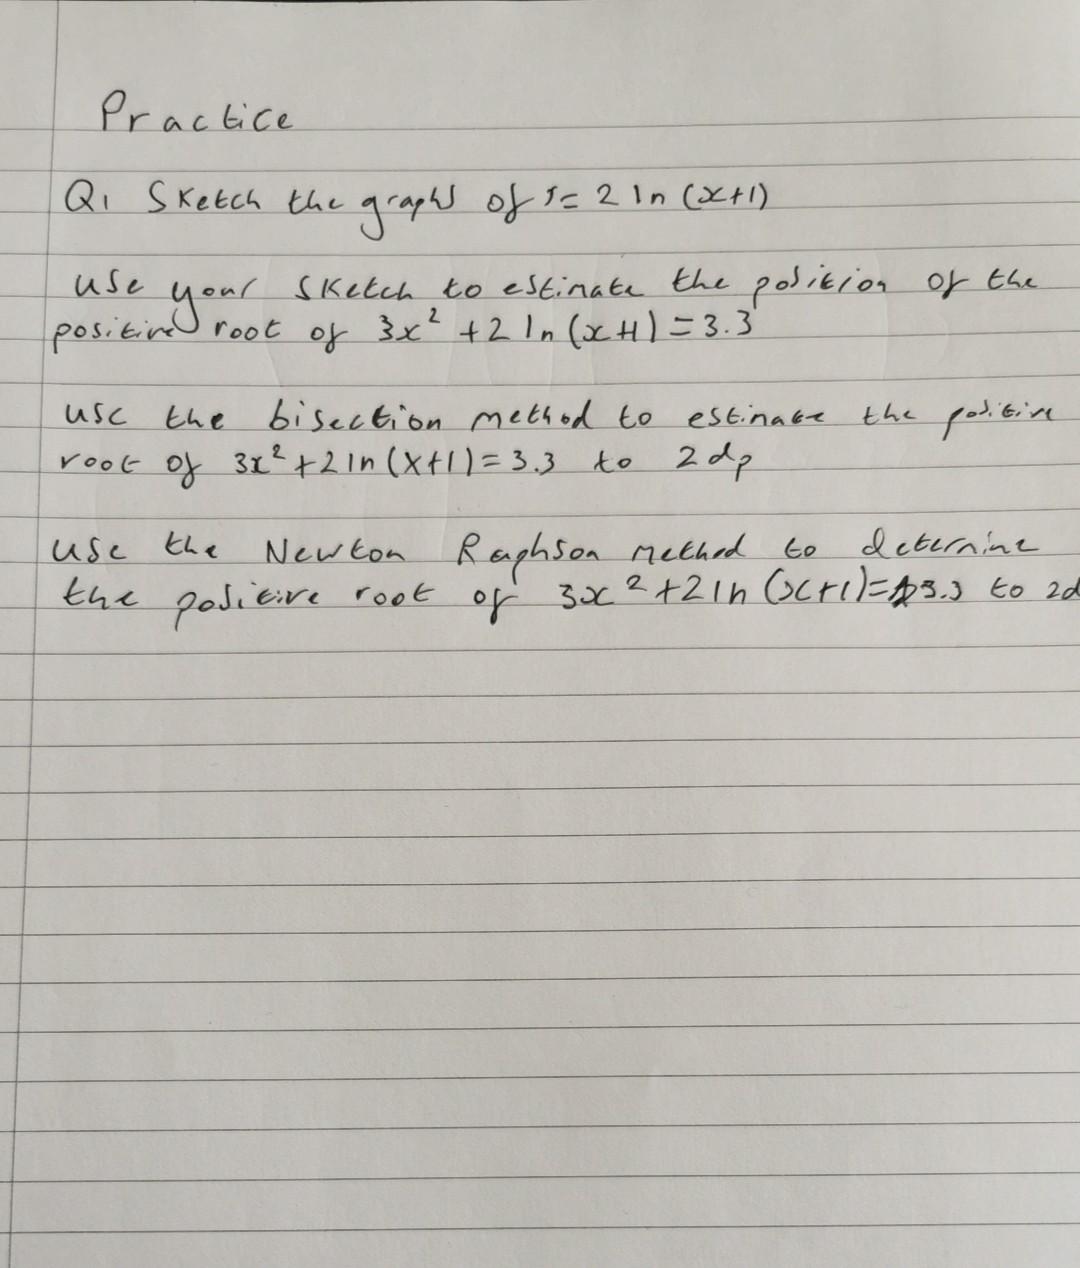 Practice
Q1 Sketch the graphs of y= 2 ln (x+1)
use your sketch to estimate the position of the
positive root of 3x² + 2 ln (x+1) = 3.3
use the bisection method to estimate the positive
root of 3x² + 2 ln (x+1) = 3.3 to 2dp
use the Newton Raphson method to determine
the positive root of 3x² + 2 ln (x+1) = 3.3 to 2d